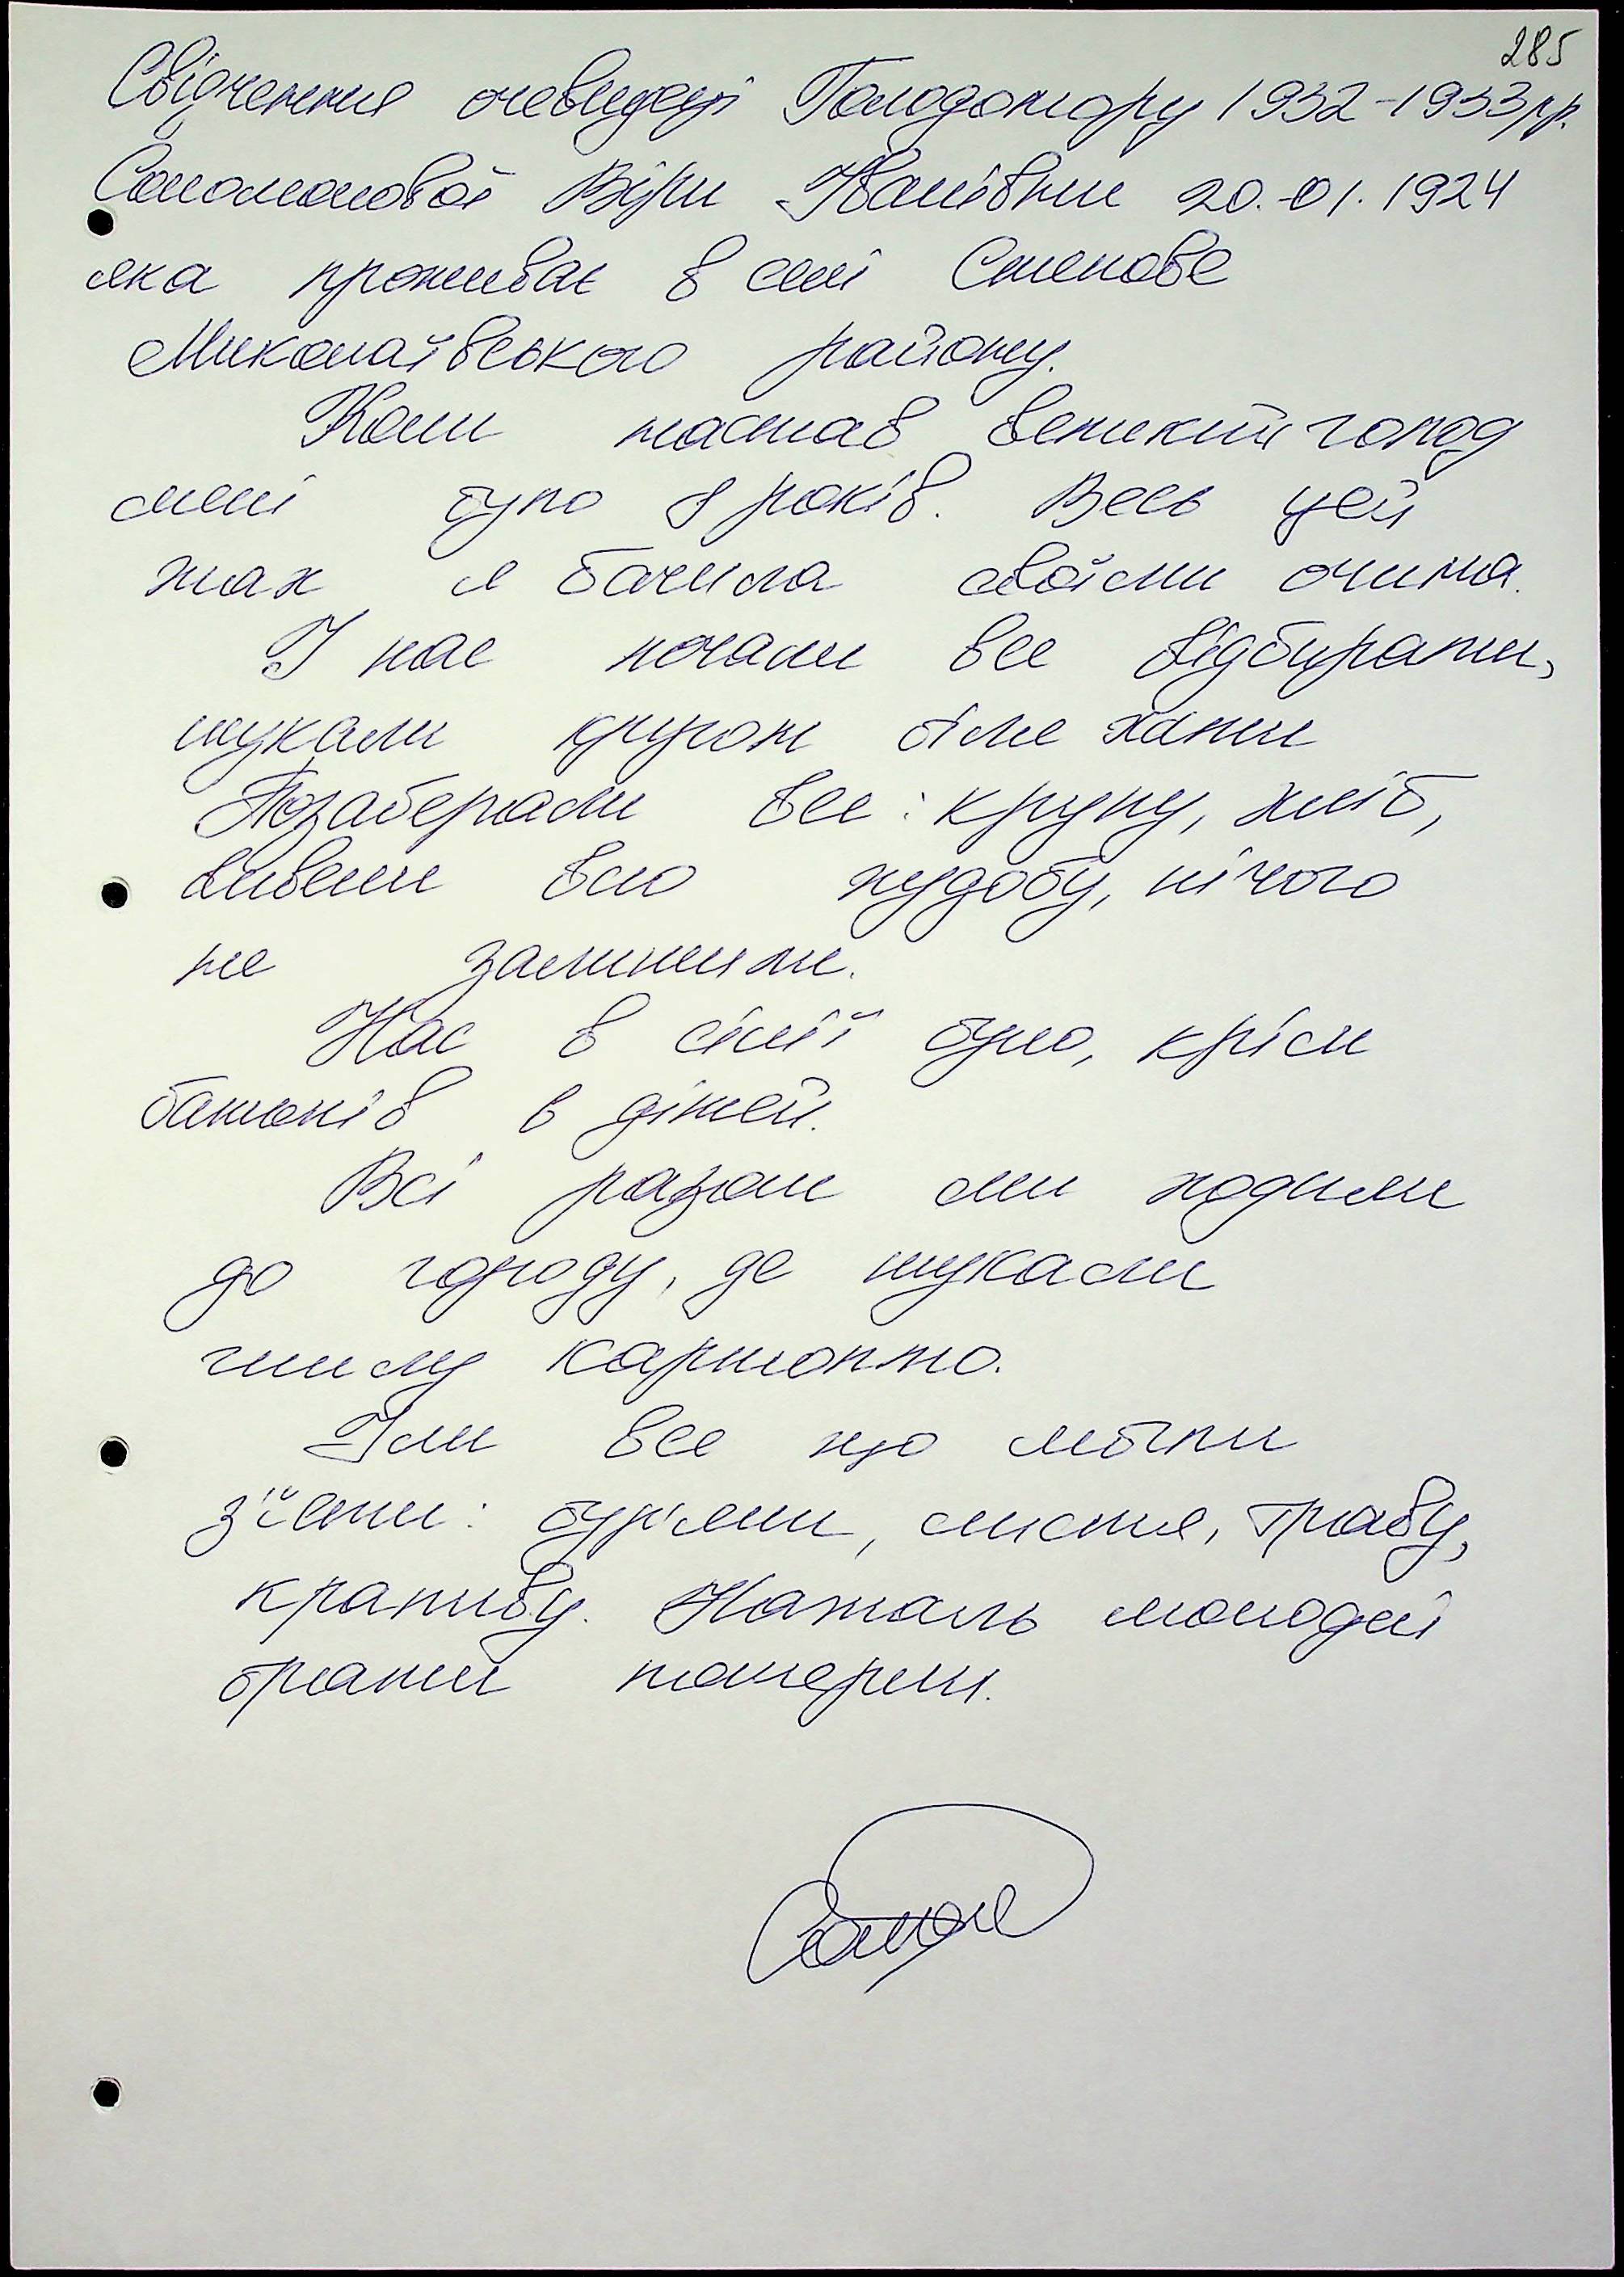 285
Свідчення очевидеці Голодомору 1932-1933рр.
Соломонової Віри Іванівни 20.01.1924
яка проживає в селі Степове
Миколаївського району.
Коли настав великий голод
мені було 8 років. Весь цей
жах я бачила своїми очима.
У нас почали все відбирати,
шукали кругом біля хати
Позаберали все: крупу, хліб,
вивели всю худобу, нічого
не залишили.
Нас в сім'ї було, крім
батьків 6 дітей.
Всі разом ми ходили
до городу, де шукали
гнилу картоплю.
Їли все що могли
з'їсти: бур'яни, листя, траву,
крапиву. На жаль молодші
брати померли.